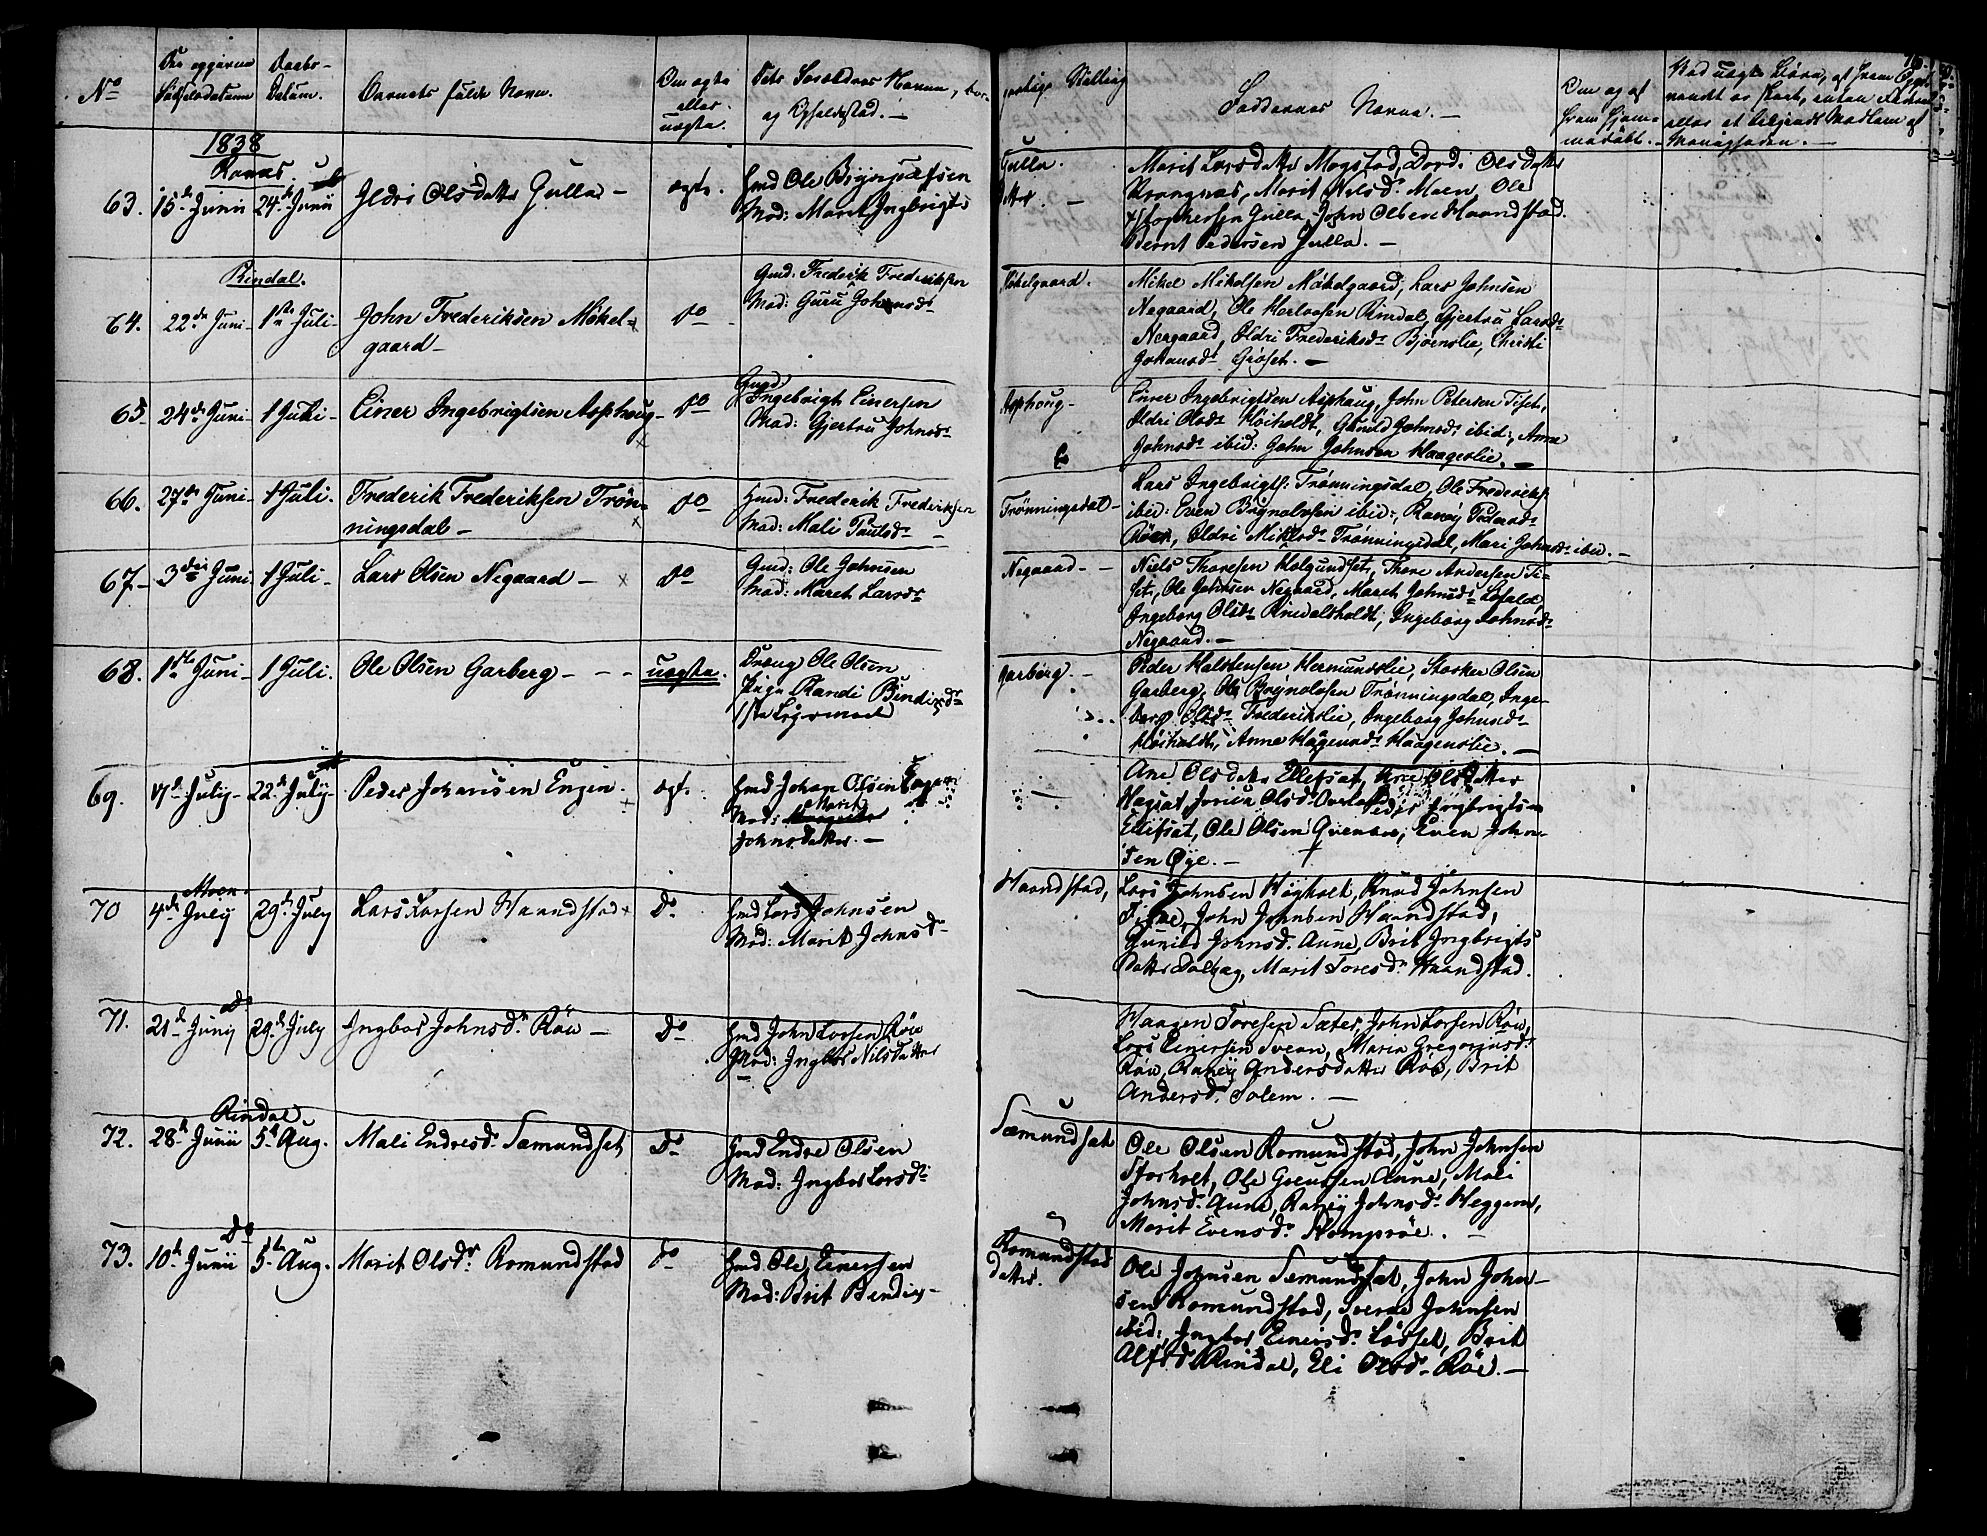 No
Den opgivne
Fødselsdatum
Daabs-
Datum.
Barnets fulde Navn.
Om ægte
eller
uægte.
Dets Forældres Navne, bor-
og Opholdsstad. —
Stilling
Faddernes Navne. —
Om og af
hvem hjem-
medøbt. —
1838
Ranæs.
63. 15de Junii 24de Junii Ildri Olsdatter Gulla — ægte.
Mod: Marit Ingbrigts
Gulla.
datter. —
Marit Larsdatter Mogstad, Dordi Olsdatter
Krangnæs, Marit Nilsd. Moen, Ole
Gulla, John Olsen Haandstad
Bernt Pedersen Gulla. —
Rindal.
64. 22de Juni 1ste Juli John Frederiksen Møkel-
gaard — do
Gmd: Frederik Frederiksen
Mod: Guru Johnsdr
Møkelgaard.
Mikel Mikelsen Møkelgaard, Lars Johnsen
Negaard, Ole Herlofsen Rindal, Gjertru Larsdr
Nergaard, Ildri Frederiksdr Bjørnslie, Christi
Johansdr Grøset. —
65. 24de Juni 1 Juli Einer Ingebrigtsen Asphoug — do
Gmd
Ingebrigt Einersen
Mod: Gjertru Johnsdr
Asphoug —
Einer Ingebrigtsen Asphaug, John Petersen Tiset,
Ildri Olsdr Høiholdt, Gunild Johnsdr ibid:, Anne
Johnsdr ibid: John Johnsen Haagenslie. —
66. 27de Juni 1 Juli. Frederik Frederiksen Trøn-
ningsdal — do
Gmd: Frederik Frederiksen
Mod: Mali Paulsdr —
Trønningsdal —
Lars Ingebrigts: Trønningsdal, Ole Frederiks:
ibid: Even Brynolvsen ibid:, Ranøy Pedersdr
Røen, Ildri Mikelsdr Trønningsdal, Mari Johnsdr ibid. —
67 — 3die Juni 1 Juli — Lars Olsen Negaard — do
Gmd: Ole Johnsen
Mod: Mareth Larsdr
Negaard —
Niels Thoresen Holgundset, Thore Andersen Ti-
set, Ole Johnsen Negaard, Mareth Johnsdr Løfald,
Ingeborg Olsdr Rindalsholdt, Ingeborg Johnsdr
Negaard. —
68. 1ste Juni — 1 Juli. Ole Olsen Garberg — uægte.
Dreng Ole Olsen
Pige Randi Bendixdr
1ste Leiermaal
Garberg. —
Peder Halstensen Hermundslie, Størker Olsen
Garberg, Ole Brynolvsen Trønningsdal, Inge-
borg Olsdr Frederikslie, Ingeborg Johnsdr
Høiholdt, Anne Haagensdr Haagenslie. —
69. July — 22de July — Peder Johansen Engen. ægte
Gmd Johan Olsen Engen
Mod: Marit
Johnsdatter. —
Ane Olsdatter Ellefsæt, Ane Olsdatter
Peder Ingbrigtsen
Ellefsæt, Ole Olsen Even John-
sen Øye. —
Moen
70 4de July 29de July Lars Larsen Haandstad do
Gmd Lars Johnsen
Mod: Marit Johnsdr
Haandstad,
Lars Johnsen Høyholt, Knud Johnsen
John Johnsen Haandstad,
Gunild Johnsd. Aune, Brit Ingbrigts
datter Marit Toresdr Haandstad.
do
71. 21de Juny 29de July Ingbor Johnsdr Røen — do
Gmd John Larsen Røen
Mod: Ingbor Nilsdatter
Haagen Toresen Sæter, John Larsen Røen,
Lars Einersen Sveen, Maria Gregoriusdr
Røen, Ranøy Andersdatter Røe, Brit
Andersd. Solem. —
Rindal.
72. 28de Junii 5te Aug. Mali Endresdr Sæmundset do
Gmd Endre Olsen
Mod: Ingbor Larsdr
Sæmundsæt
Ole Olsen Romundstad, John Johnsen
Storholt, Ole Aune, Mali
Johnsd. Aune, Ranøy Johnsdr Heggem,
Marit Evensdr Komprøe. —
do
73. 10de Junii 5te Aug. Marit Olsdr Romundstad do
Gmd Ole Einersen
Mod: Brit Bendix-
Romundstad
datter.
Ole Johnsen Semundsæt, John John-
sen Romundstad, Sverre Johnsen
ibid:, Ingbor Einersdr Løset, Brit
Alfsd. Rindal, Eli Olsdr Røe. —